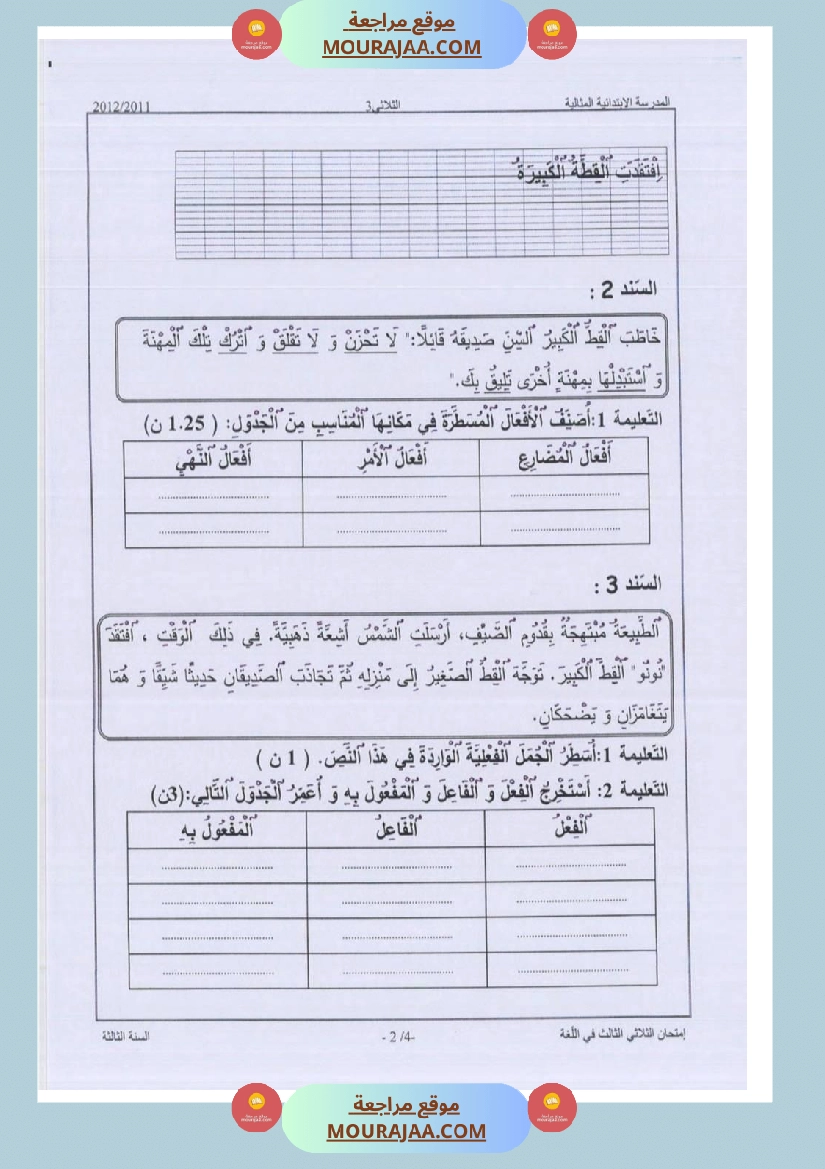 موقع مراجعة
MOURAJAA.COM
المدرسة الابتدائية المثالية الثلاثي3 2012/2011
اِفْتَقَدَتِ ٱلْقِطَّةُ ٱلْكَبِيرَةُ
السّند 2 :
خَاطَبَ ٱلْقِطُّ ٱلْكَبِيرُ ٱلسِّنِ صَدِيقَهُ قَائِلًا:" لَا تَحْزَنْ وَ لَا تَقْلَقْ وَ ٱتْرُكْ تِلْكَ ٱلْمِهْنَةَ
وَ ٱسْتَبْدِلْهَا بِمِهْنَةٍ أُخْرَى تَلِيقُ بِكَ."
التّعليمة 1:أُصَنِّفُ ٱلْأَفْعَالَ ٱلْمُسَطَّرَةَ فِي مَكَانِهَا ٱلْمُنَاسِبِ مِنَ ٱلْجَدْوَلِ: ( 1.25 ن)
أَفْعَالُ ٱلْمُضَارِعِ أَفْعَالُ ٱلْأَمْرِ أَفْعَالُ ٱلنَّهْيِ
السّند 3 :
ٱلطَّبِيعَةُ مُبْتَهِجَةٌ بِقُدُومِ ٱلصَّيْفِ، أَرْسَلَتِ ٱلشَّمْسُ أَشِعَّةً ذَهَبِيَّةً. فِي ذَلِكَ ٱلْوَقْتِ ، ٱفْتَقَدَ
"نُونُو" ٱلْقِطَّ ٱلْكَبِيرَ. تَوَجَّهَ ٱلْقِطُّ ٱلصَّغِيرُ إِلَى مَنْزِلِهِ ثُمَّ تَجَاذَبَ ٱلصَّدِيقَانِ حَدِيثًا شَيِّقًا وَ هُمَا
يَتَغَامَزَانِ وَ يَضْحَكَانِ.
التّعليمة 1:أُسَطِّرُ ٱلْجُمَلَ ٱلْفِعْلِيَّةَ ٱلْوَارِدَةَ فِي هَذَا ٱلنَّصِّ. ( 1 ن )
التّعليمة 2: أَسْتَخْرِجُ ٱلْفِعْلَ وَ ٱلْفَاعِلَ وَ ٱلْمَفْعُولَ بِهِ وَ أُعَمِّرُ ٱلْجَدْوَلَ ٱلتَّالِي:(3ن)
ٱلْفِعْلُ ٱلْفَاعِلُ ٱلْمَفْعُولُ بِهِ
إمتحان الثلاثي الثالث في اللّغة - 2 /4- السنة الثالثة
موقع مراجعة
MOURAJAA.COM